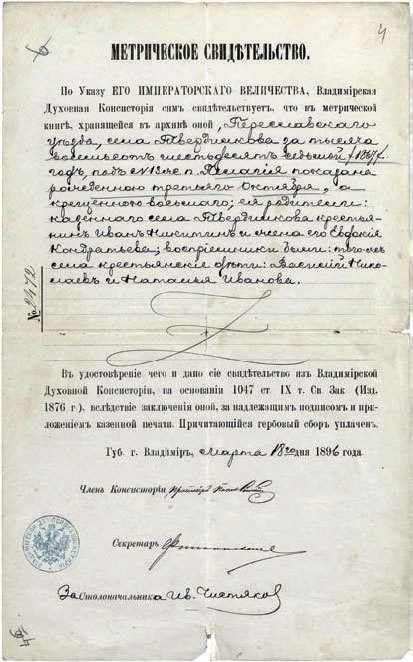 4
МЕТРИЧЕСКОЕ СВИДѢТЕЛЬСТВО.
По Указу ЕГО ИМПЕРАТОРСКАГО ВЕЛИЧЕСТВА, Владимірская
Духовная Консисторія симъ свидѣтельствуетъ, что въ метрической
книгѣ, хранящейся въ архивѣ оной, Переславскаго
уѣзда, села Твердилкова за тысяча
восемьсотъ шестьдесятъ седьмой /1867/
годъ, подъ № 13 Пелагія показана
рожденною третьяго Октября, а
крещенною восьмаго; ея родители:
казеннаго села Твердилкова крестья-
нинъ Иванъ Никитинъ и жена его Евдокія
Кондратьева; воспріемники были: того же
села крестьянскіе дѣти: Василій Нико-
лаевъ и Наталья Иванова.
№ 2472
Въ удостовѣреніе чего и дано сіе свидѣтельство изъ Владимірской
Духовной Консисторіи, на основаніи 1047 ст. IX т. Св. Зак (Изд.
1876 г.), вслѣдствіе заключенія оной, за надлежащимъ подписомъ и при-
ложеніемъ казенной печати. Причитающійся гербовый сборъ уплаченъ.
Губ. г. Владіміръ, Марта 18го дня 1896 года.
Членъ Консисторіи протоіерей
Секретарь
За Столоначальника Ив. Чистяковъ